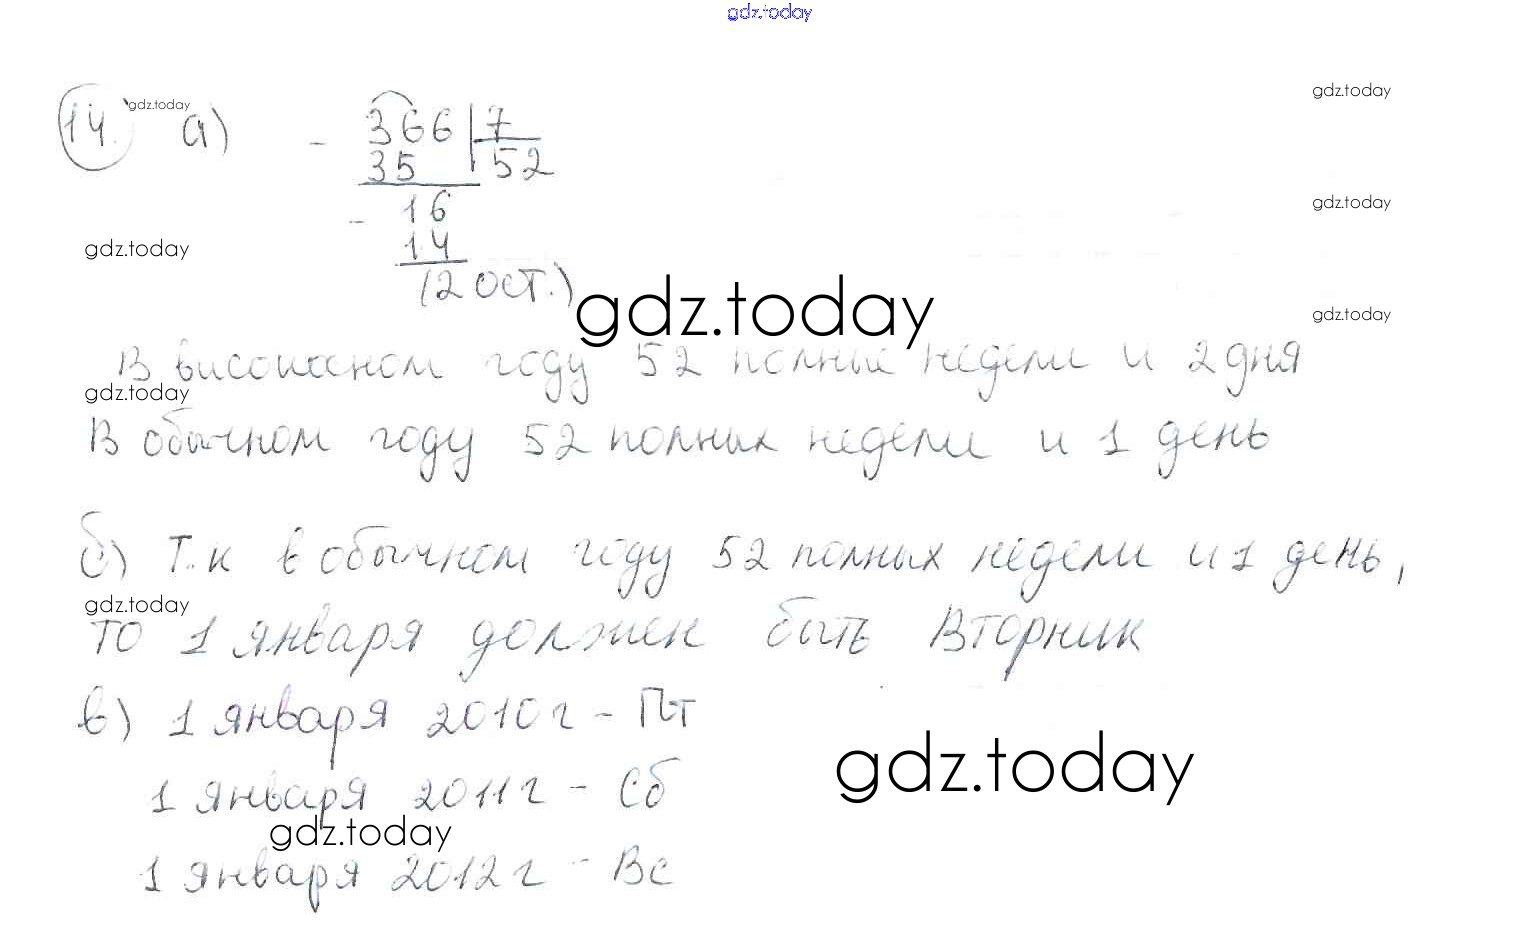 gdz.today
14. gdz.today а) - 366 | 7
gdz.today
35 52
- 16
gdz.today
14
gdz.today
(2 ост.)
gdz.today
gdz.today
В високосном году 52 полные недели и 2 дня
gdz.today
В обычном году 52 полных недели и 1 день
б) Т.к в обычном году 52 полных недели и 1 день,
gdz.today
то 1 января должен быть Вторник
в) 1 января 2010 г - Пт
gdz.today
1 января 2011 г - Сб
gdz.today
1 января 2012 г - Вс